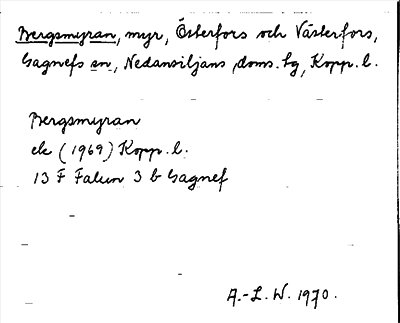 Bergsmyran, myr, Österfors och Västerfors,
Gagnefs sn, Nedansiljans doms. hg, Kopp. l.
Bergsmyran
ek (1969) Kopp. l.
13 F Falun 3 b Gagnef
A.-L. W. 1970.